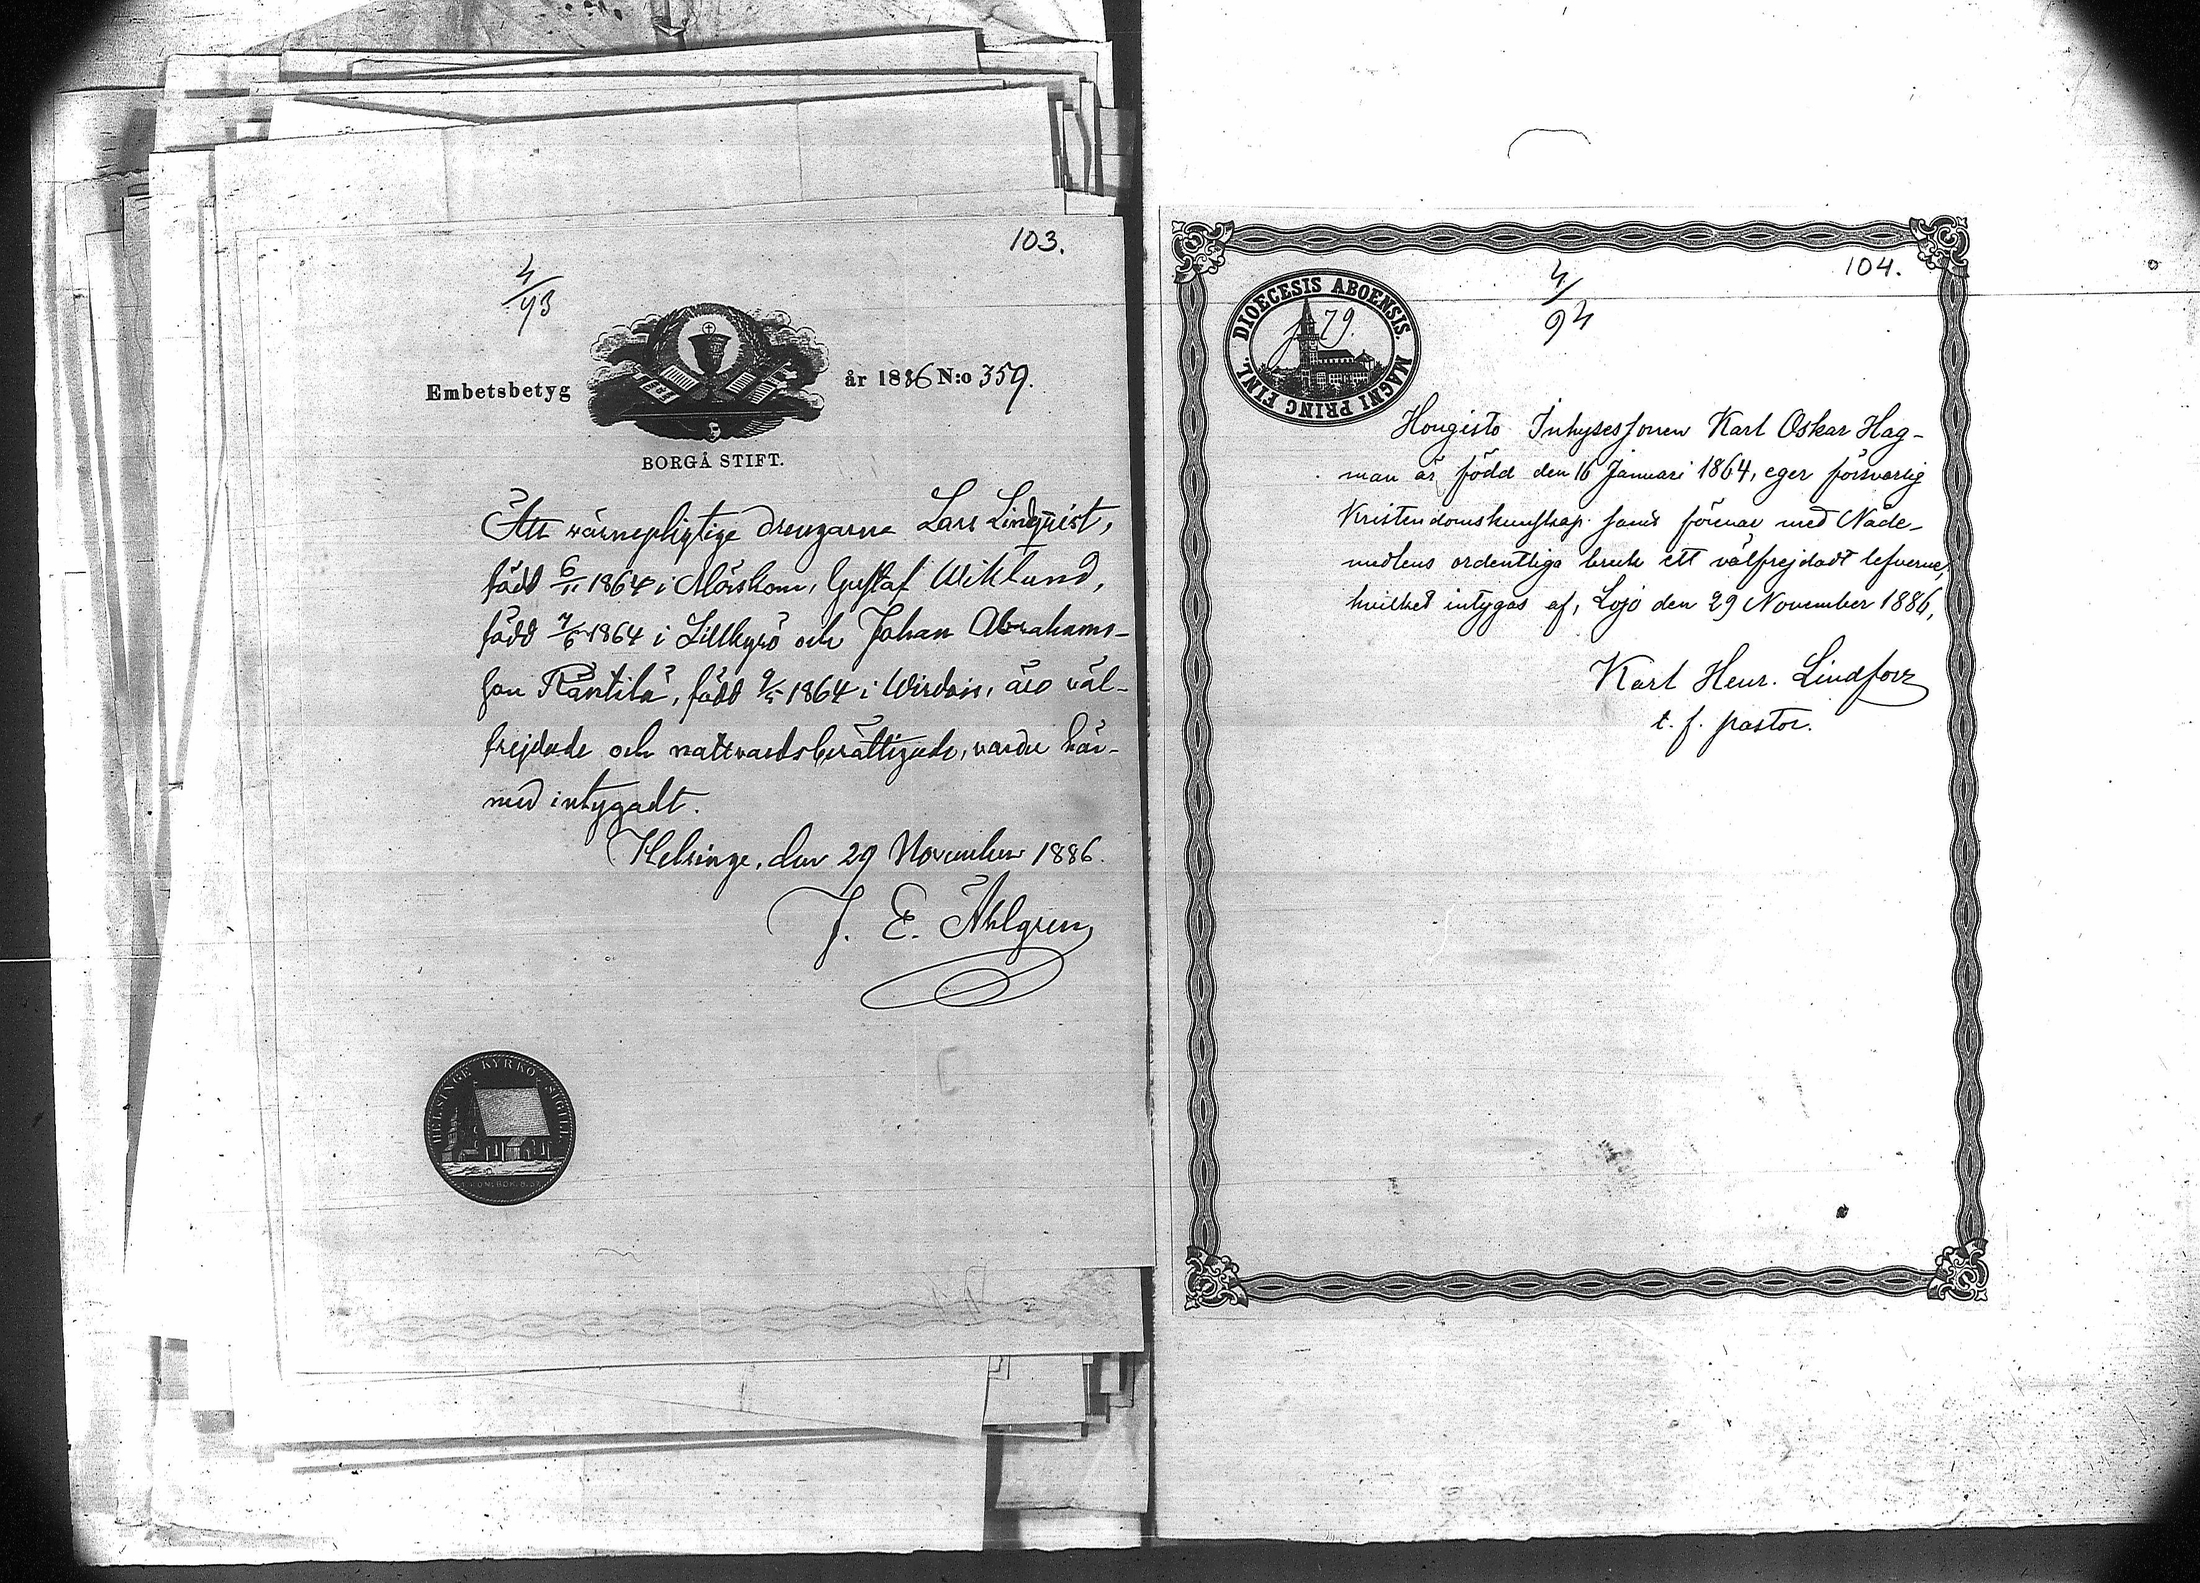 103.
4/93
Embetsbetyg
år 1886 N:o 359.
BORGÅ STIFT.
Att wärnepligtige drengarne Lars Lindqvist,
född 6/11 1864 i Mörskom, Gustaf Wiklund,
född 7/6 1864 i Lillkyrö och Johan Abrahams-
son Räntilä, född 9/5 1864 i Wirdois, äro väl-
frejdade och nattvardsberättigade, varder här-
med intygadt.
Helsinge, den 29 November 1886.
J. E. Åhlgren
HELSINGE KYRKO SIGILL
104.
4/94
DIOECESIS ABOENSIS. MAGNI PRINC FINL.
79.
Hongisto Inhysessonen Karl Oskar Hag-
man är född den 16 Januari 1864, eger försvarlig
Kristendomskunskap samt förenar med Nåde-
medlens ordentliga bruk ett välfrejdadt lefverne,
hvilket intygas af, Lojo den 29 November 1886,
Karl Henr. Lindfors
t. f. pastor.